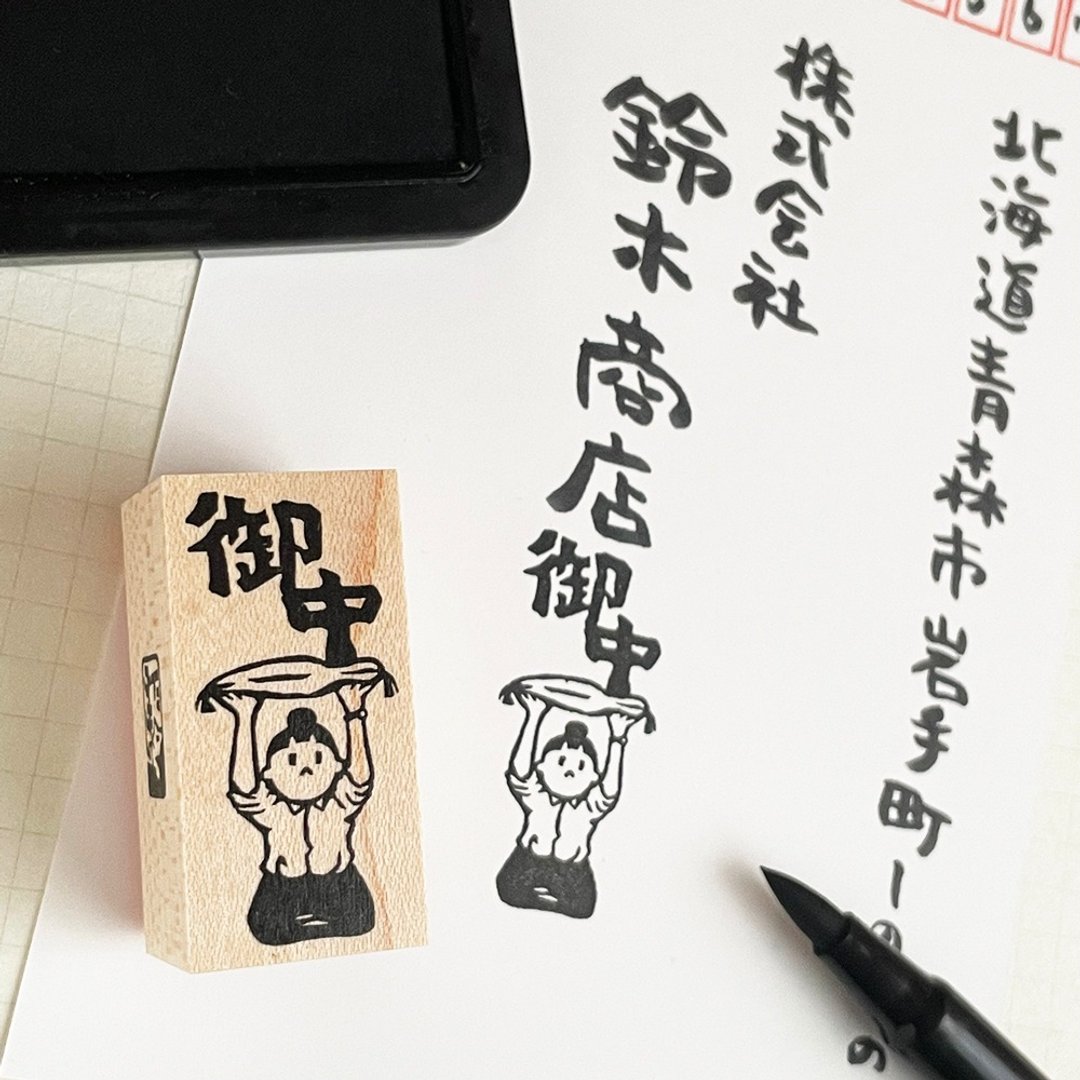 北海道青森市岩手町一の
の
株式会社
鈴木商店
御中
御中